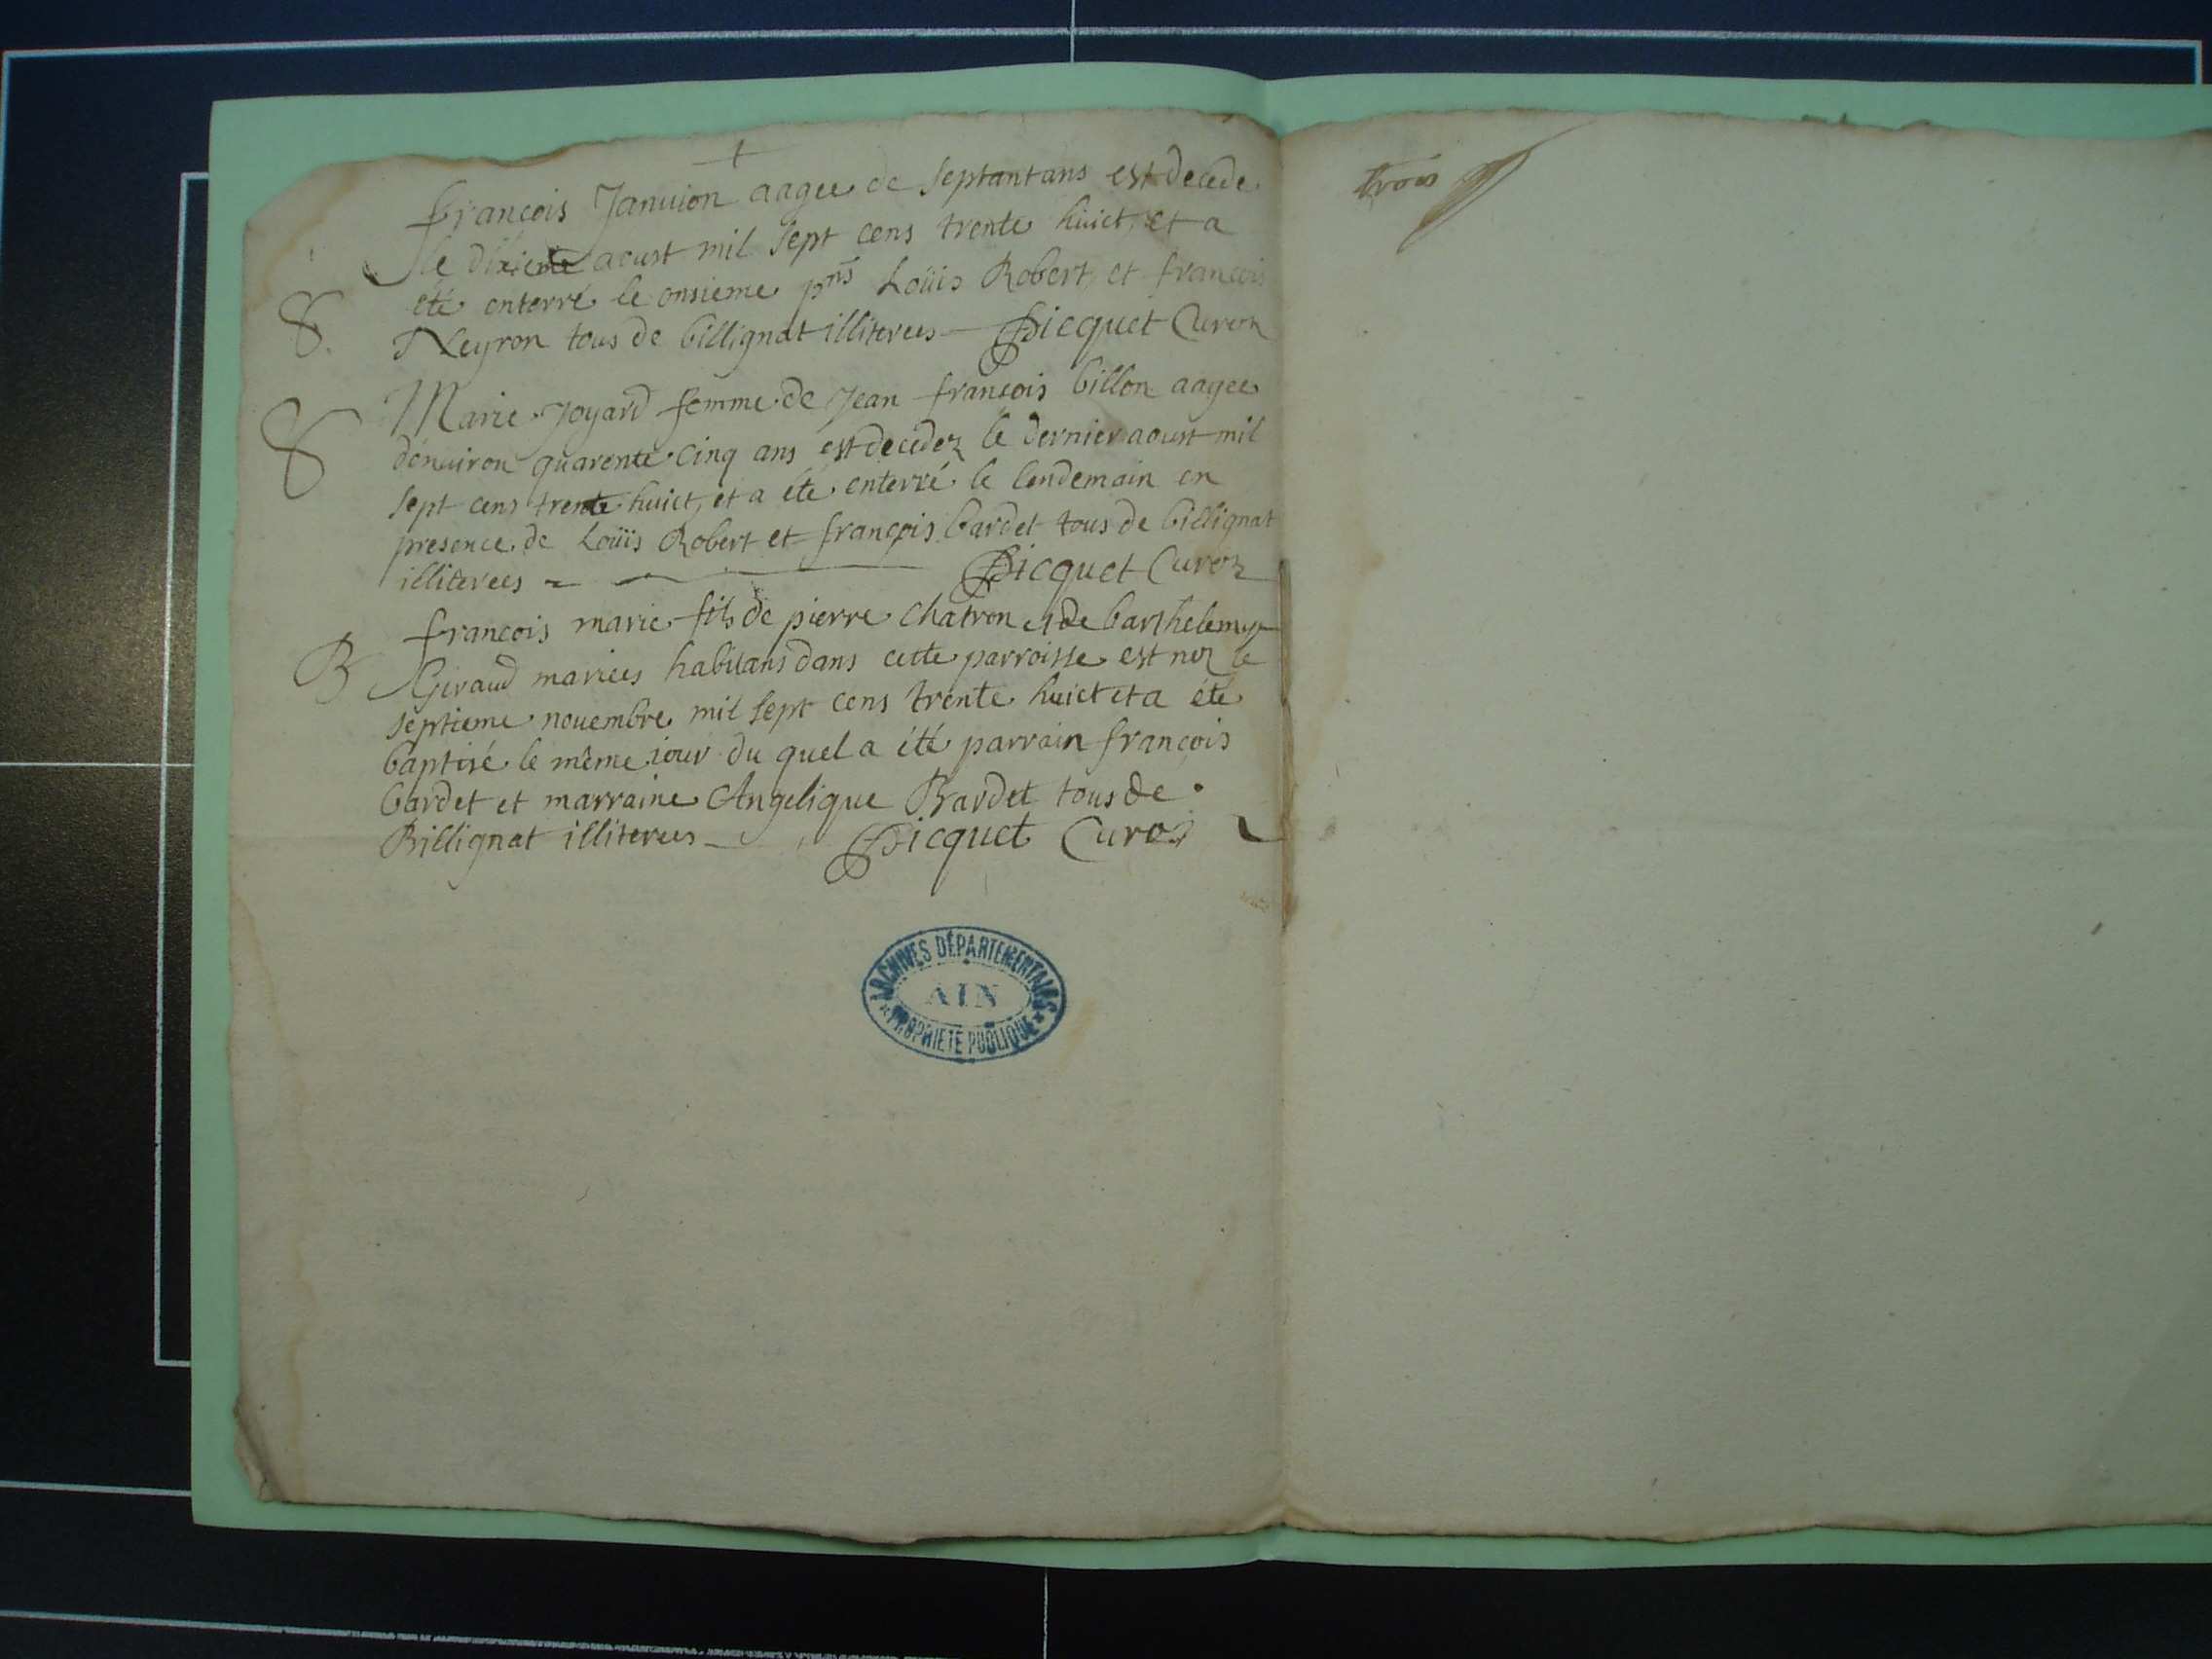 françois Januion aagee de septant ans est decede
le dixieme aoust mil sept cens trente huict, et a
été enterré le onsieme pnts Loüis Robert, et francois
S. Neyron tous de billignat illiterees Dicquet Curez
Marie Joyard femme de Jean françois billon aagee
S denuiron quarente cinq ans est decedez le dernier aoust mil
sept cens trente huict, et a été enterré le lendemain en
presence de Loüis Robert et françois bardet tous de billignat
illiterees Dicquet Curez
francois marie fils de pierre Chatron et de barthelemye
B Giraud mariees habitans dans cette parroisse est nez le
septieme nouembre mil sept cens trente huict et a été
baptisé le même iour du quel a été parrain françois
bardet et marraine Angelique Bardet tous de
Billignat illiterees Dicquet Curez
ARCHIVES DÉPARTEMENTALES
AIN
PROPRIÉTÉ PUBLIQUE
trois